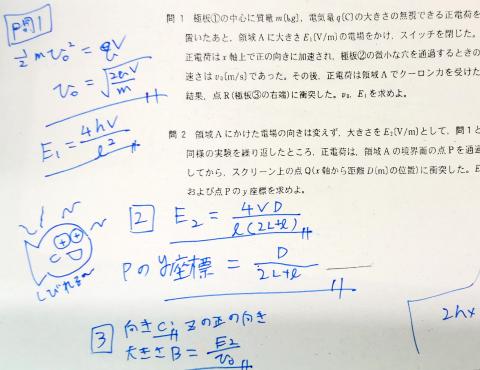 P問1
½mv₀² = qV
v₀ = √(2qV/m)
E₁ = 4hV/ℓ²
問1 極板①の中心に質量m[kg]、電気量q(C)の大きさの無視できる正電荷を
置いたあと、領域AにE₁(V/m)の電場をかけ、スイッチを閉じた。
正電荷はx軸上で正の向きに加速され、極板②の微小な穴を通過するときの
速さはv₀[m/s]であった。その後、正電荷は領域Aでクーロン力を受けた
結果、点R(極板③の右端)に衝突した。v₀、E₁を求めよ。
問2 領域Aにかけた電場の向きは変えず、大きさをE₂[V/m]として、問1と
同様の実験を繰り返したところ、正電荷は、領域Aの境界面の点Pを通過
してから、スクリーン上の点Q(x軸から距離D(m)の位置)に衝突した。E
および点Pのy座標を求めよ。
2 E₂ = 4VD/ℓ(2L+ℓ)
Pのy座標 = D/2L+ℓ
しびれる〜
3 向き Ci zの正の向き
大きさB = E₂/v₀
2hx